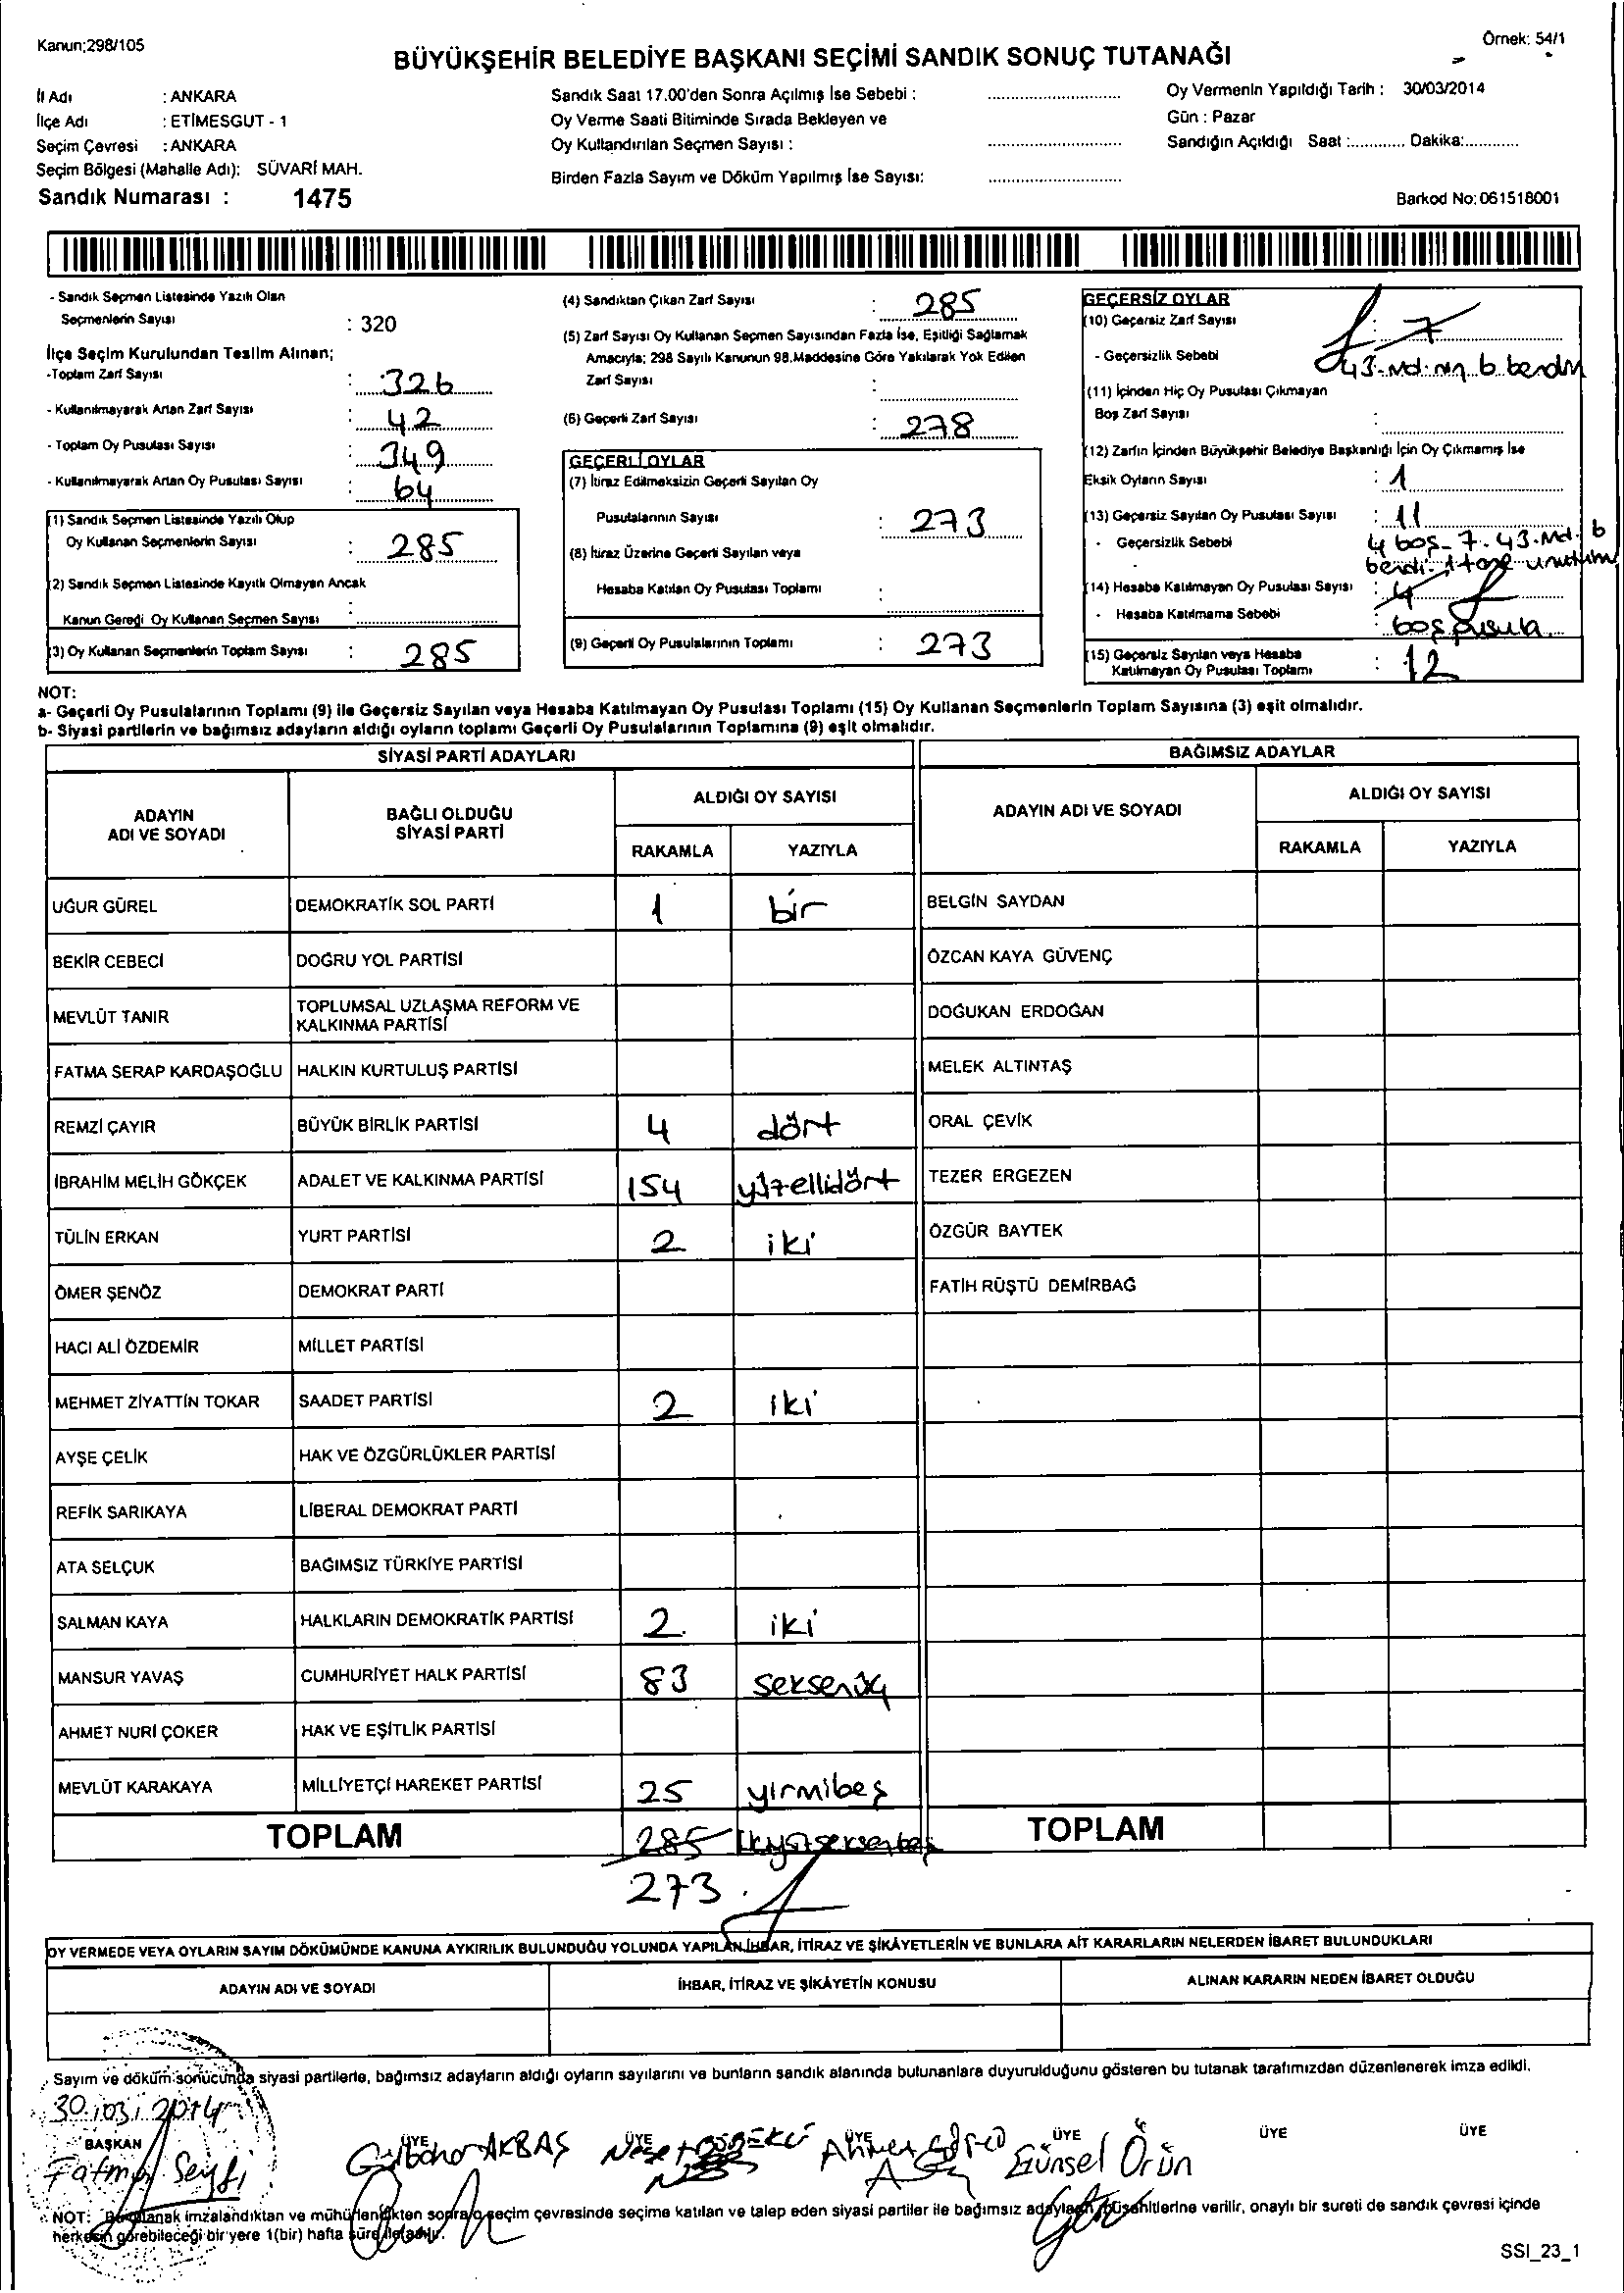 Kanun;298/105
Örnek: 54/1
BÜYÜKŞEHİR BELEDİYE BAŞKANI SEÇİMİ SANDIK SONUÇ TUTANAĞI
İl Adı : ANKARA
İlçe Adı : ETİMESGUT - 1
Seçim Çevresi : ANKARA
Seçim Bölgesi (Mahalle Adı): SÜVARİ MAH.
Sandık Numarası : 1475
Sandık Saat 17.00'den Sonra Açılmış İse Sebebi :
Oy Verme Saati Bitiminde Sırada Bekleyen ve
Oy Kullandırılan Seçmen Sayısı :
Birden Fazla Sayım ve Döküm Yapılmış İse Sayısı:
Oy Vermenin Yapıldığı Tarih : 30/03/2014
Gün : Pazar
Sandığın Açıldığı Saat :............ Dakika:............
Barkod No:061518001
- Sandık Seçmen Listesinde Yazılı Olan
Seçmenlerin Sayısı : 320
İlçe Seçim Kurulundan Teslim Alınan;
-Toplam Zarf Sayısı : 326
- Kullanılmayarak Artan Zarf Sayısı : 42
- Toplam Oy Pusulası Sayısı : 349
- Kullanılmayarak Artan Oy Pusulası Sayısı : 64
(1) Sandık Seçmen Listesinde Yazılı Olup
Oy Kullanan Seçmenlerin Sayısı : 285
(2) Sandık Seçmen Listesinde Kayıtlı Olmayan Ancak
Kanun Gereği Oy Kullanan Seçmen Sayısı :
(3) Oy Kullanan Seçmenlerin Toplam Sayısı : 285
(4) Sandıktan Çıkan Zarf Sayısı : 285
(5) Zarf Sayısı Oy Kullanan Seçmen Sayısından Fazla İse, Eşitliği Sağlamak
Amacıyla; 298 Sayılı Kanunun 98.Maddesine Göre Yakılarak Yok Edilen
Zarf Sayısı :
(6) Geçerli Zarf Sayısı : 278
GEÇERLİ OYLAR
(7) İtiraz Edilmeksizin Geçerli Sayılan Oy
Pusulalarının Sayısı : 273
(8) İtiraz Üzerine Geçerli Sayılan veya
Hesaba Katılan Oy Pusulası Toplamı :
(9) Geçerli Oy Pusulalarının Toplamı : 273
GEÇERSİZ OYLAR
(10) Geçersiz Zarf Sayısı : 7
- Geçersizlik Sebebi 43. Md. nin b bendi
(11) İçinden Hiç Oy Pusulası Çıkmayan
Boş Zarf Sayısı :
(12) Zarfın İçinden Büyükşehir Belediye Başkanlığı İçin Oy Çıkmamış İse
Eksik Oyların Sayısı : 1
(13) Geçersiz Sayılan Oy Pusulası Sayısı : 11
- Geçersizlik Sebebi 4 boş - 7. 43. Md. b
bendi-
(14) Hesaba Katılmayan Oy Pusulası Sayısı : 4
- Hesaba Katılmama Sebebi : boş pusula
(15) Geçersiz Sayılan veya Hesaba
Katılmayan Oy Pusulası Toplamı : 12
NOT:
a- Geçerli Oy Pusulalarının Toplamı (9) ile Geçersiz Sayılan veya Hesaba Katılmayan Oy Pusulası Toplamı (15) Oy Kullanan Seçmenlerin Toplam Sayısına (3) eşit olmalıdır.
b- Siyasi partilerin ve bağımsız adayların aldığı oyların toplamı Geçerli Oy Pusulalarının Toplamına (9) eşit olmalıdır.
SİYASİ PARTİ ADAYLARI
ADAYIN ADI VE SOYADI
BAĞLI OLDUĞU SİYASİ PARTİ
ALDIĞI OY SAYISI
RAKAMLA YAZIYLA
UĞUR GÜREL DEMOKRATİK SOL PARTİ 1 bir
BEKİR CEBECİ DOĞRU YOL PARTİSİ
MEVLÜT TANIR TOPLUMSAL UZLAŞMA REFORM VE
KALKINMA PARTİSİ
FATMA SERAP KARDAŞOĞLU HALKIN KURTULUŞ PARTİSİ
REMZİ ÇAYIR BÜYÜK BİRLİK PARTİSİ 4 dört
İBRAHİM MELİH GÖKÇEK ADALET VE KALKINMA PARTİSİ 154 yüzellidört
TÜLİN ERKAN YURT PARTİSİ 2 iki
ÖMER ŞENÖZ DEMOKRAT PARTİ
HACI ALİ ÖZDEMİR MİLLET PARTİSİ
MEHMET ZİYATTİN TOKAR SAADET PARTİSİ 2 iki
AYŞE ÇELİK HAK VE ÖZGÜRLÜKLER PARTİSİ
REFİK SARIKAYA LİBERAL DEMOKRAT PARTİ
ATA SELÇUK BAĞIMSIZ TÜRKİYE PARTİSİ
SALMAN KAYA HALKLARIN DEMOKRATİK PARTİSİ 2 iki
MANSUR YAVAŞ CUMHURİYET HALK PARTİSİ 83 seksenüç
AHMET NURİ ÇOKER HAK VE EŞİTLİK PARTİSİ
MEVLÜT KARAKAYA MİLLİYETÇİ HAREKET PARTİSİ 25 yirmibeş
TOPLAM 285 ikiyüzseksenbeş
273
BAĞIMSIZ ADAYLAR
ADAYIN ADI VE SOYADI
ALDIĞI OY SAYISI
RAKAMLA YAZIYLA
BELGİN SAYDAN
ÖZCAN KAYA GÜVENÇ
DOĞUKAN ERDOĞAN
MELEK ALTINTAŞ
ORAL ÇEVİK
TEZER ERGEZEN
ÖZGÜR BAYTEK
FATİH RÜŞTÜ DEMİRBAĞ
TOPLAM
OY VERMEDE VEYA OYLARIN SAYIM DÖKÜMÜNDE KANUNA AYKIRILIK BULUNDUĞU YOLUNDA YAPILAN İHBAR, İTİRAZ VE ŞİKÂYETLERİN VE BUNLARA AİT KARARLARIN NELERDEN İBARET BULUNDUKLARI
ADAYIN ADI VE SOYADI İHBAR, İTİRAZ VE ŞİKÂYETİN KONUSU ALINAN KARARIN NEDEN İBARET OLDUĞU
Sayım ve döküm sonucunda siyasi partilerle, bağımsız adayların aldığı oyların sayılarını ve bunların sandık alanında bulunanlara duyurulduğunu gösteren bu tutanak tarafımızdan düzenlenerek imza edildi.
30.03.2014
BAŞKAN ÜYE ÜYE ÜYE ÜYE ÜYE ÜYE
Fatma AKBAŞ Günsel Örün
NOT: Bu tutanak imzalandıktan ve mühürlendikten sonra, seçim çevresinde seçime katılan ve talep eden siyasi partiler ile bağımsız adayların müşahitlerine verilir, onaylı bir sureti de sandık çevresi içinde
herkesin görebileceği bir yere 1(bir) hafta süre ile asılır.
SSI_23_1